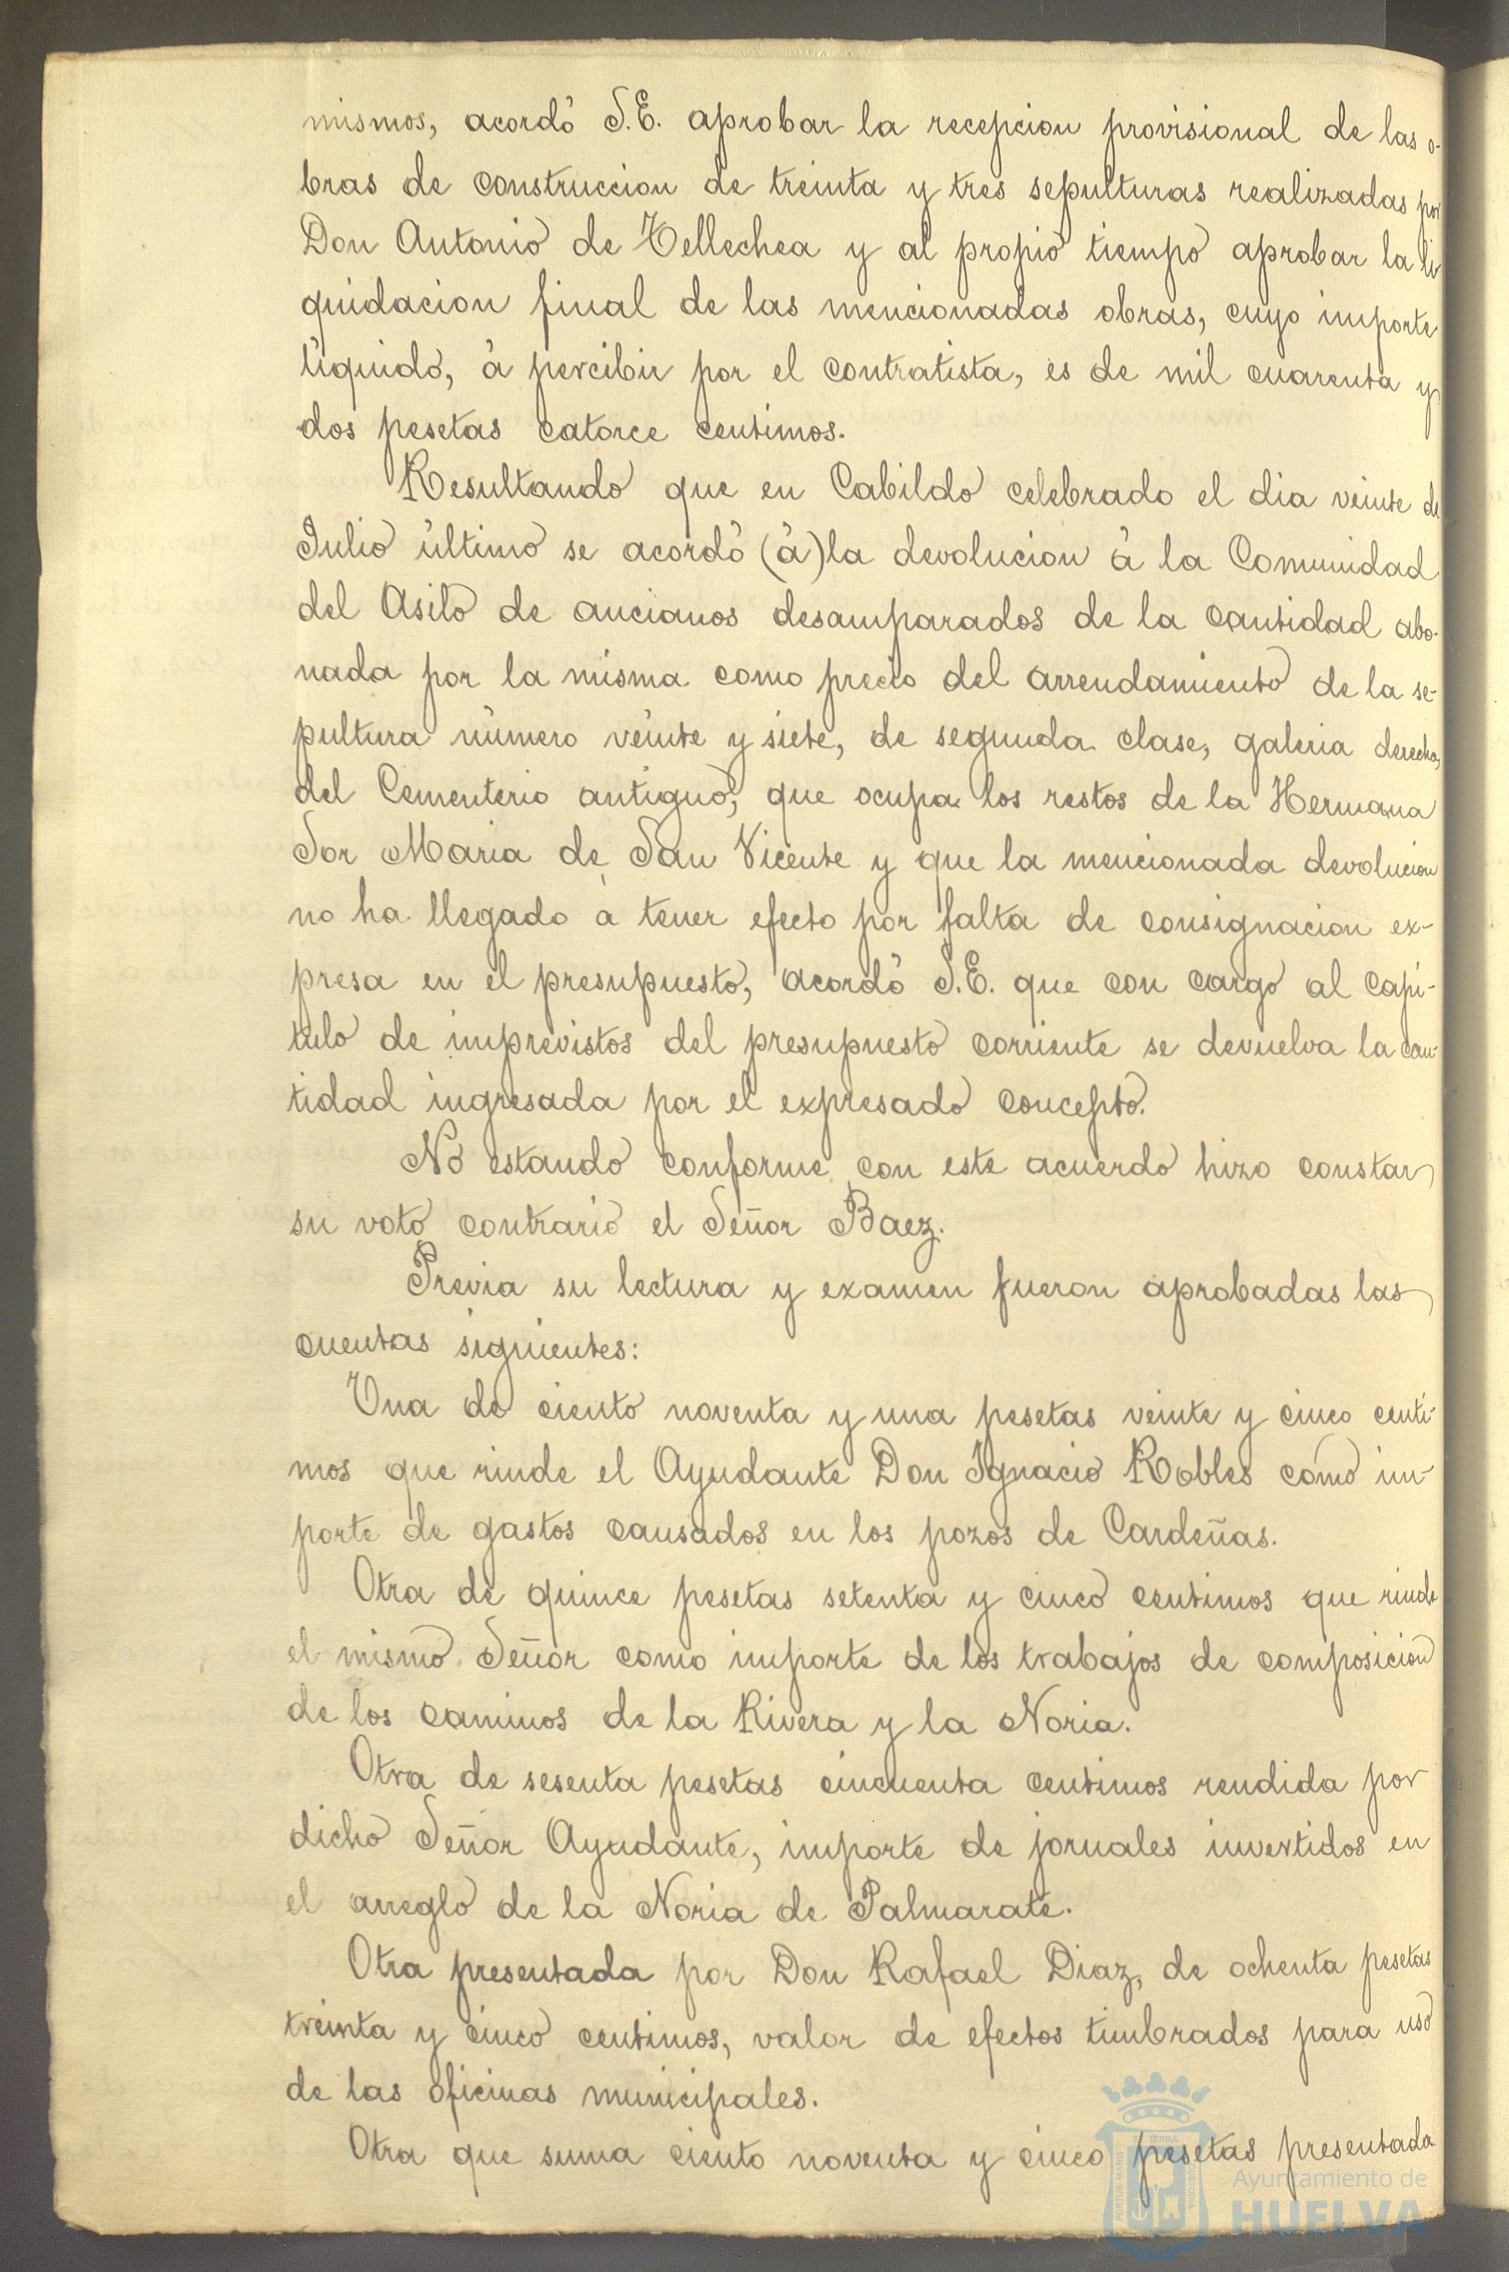 mismos, acordó S.E. aprobar la recepcion provisional de las o-
bras de construccion de treinta y tres sepulturas realizadas por
Don Antonio de Tellechea y al propio tiempo aprobar la li
quidacion final de las mencionadas obras, cuyo importe
líquido, á percibir por el contratista, es de mil cuarenta y
dos pesetas catorce centimos.
Resultando que en Cabildo celebrado el dia veinte de
Julio último se acordó (á) la devolucion á la Comunidad
del Asilo de ancianos desamparados de la cantidad abo-
nada por la misma como precio del arrendamiento de la se-
pultura número veinte y siete, de segunda clase, galeria derecha,
del Cementerio antiguo, que ocupa los restos de la Hermana
Sor Maria de San Vicente y que la mencionada devolucion
no ha llegado á tener efecto por falta de consignacion ex-
presa en el presupuesto, acordó S.E. que con cargo al capi-
tulo de imprevistos del presupuesto corriente se devuelva la can-
tidad ingresada por el expresado concepto.
No estando conforme con este acuerdo hizo constar
su voto contrario el Señor Baez.
Previa su lectura y examen fueron aprobadas las
cuentas siguientes:
Una de ciento noventa y una pesetas veinte y cinco centi-
mos que rinde el Ayudante Don Ignacio Robles como im-
porte de gastos causados en los pozos de Cardeñas.
Otra de quince pesetas setenta y cinco centimos que rinde
el mismo Señor como importe de los trabajos de composicion
de los caminos de la Rivera y la Noria.
Otra de sesenta pesetas cincuenta centimos rendida por
dicho Señor Ayudante, importe de jornales invertidos en
el arreglo de la Noria de Palmarate.
Otra presentada por Don Rafael Diaz, de ochenta pesetas
treinta y cinco centimos, valor de efectos timbrados para uso
de las oficinas municipales.
Otra que suma ciento noventa y cinco pesetas presentada
Ayuntamiento de
HUELVA